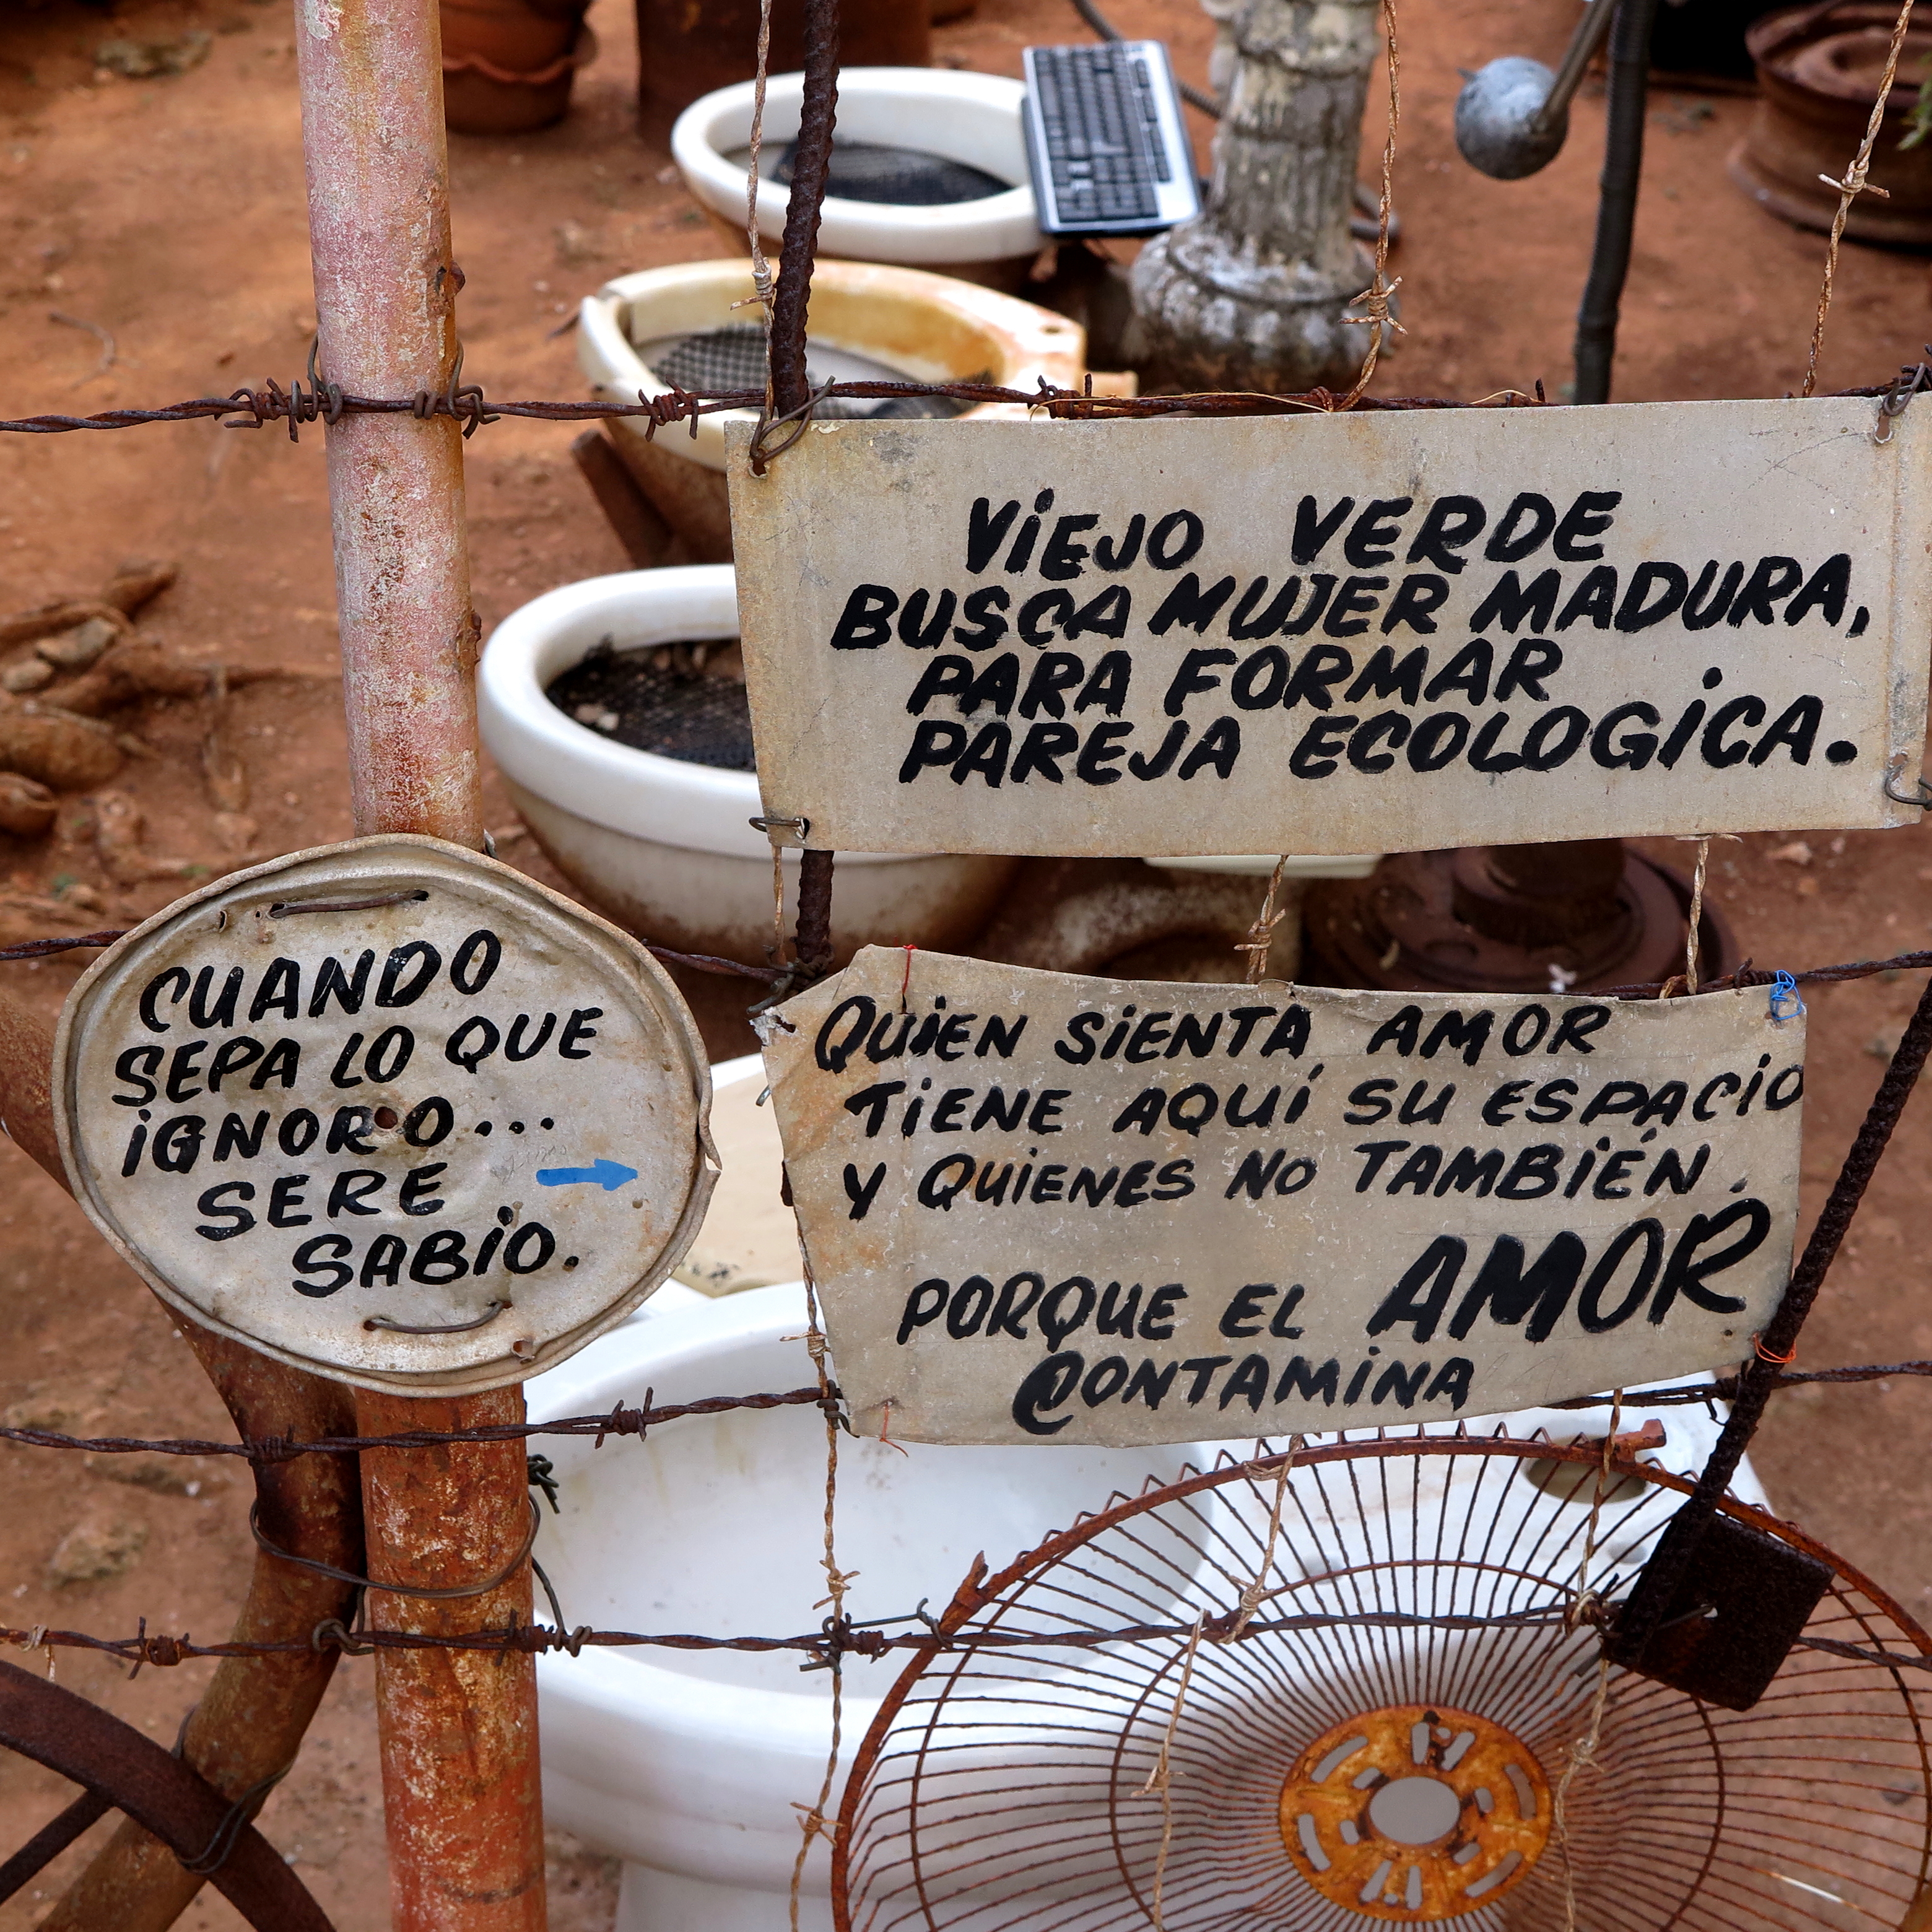 VIEJO VERDE
BUSCA MUJER MADURA,
PARA FORMAR
PAREJA ECOLOGICA.
CUANDO
SEPA LO QUE
IGNORO...
SERE
SABIO.
QUIEN SIENTA AMOR
TIENE AQUÍ SU ESPACIO
Y QUIENES NO TAMBIÉN.
PORQUE EL AMOR
@ONTAMINA